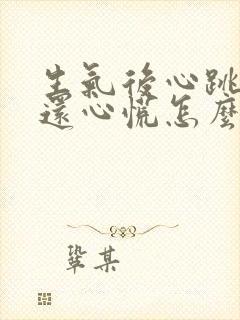 生氣後心跳
還心慌怎麼
鞏某